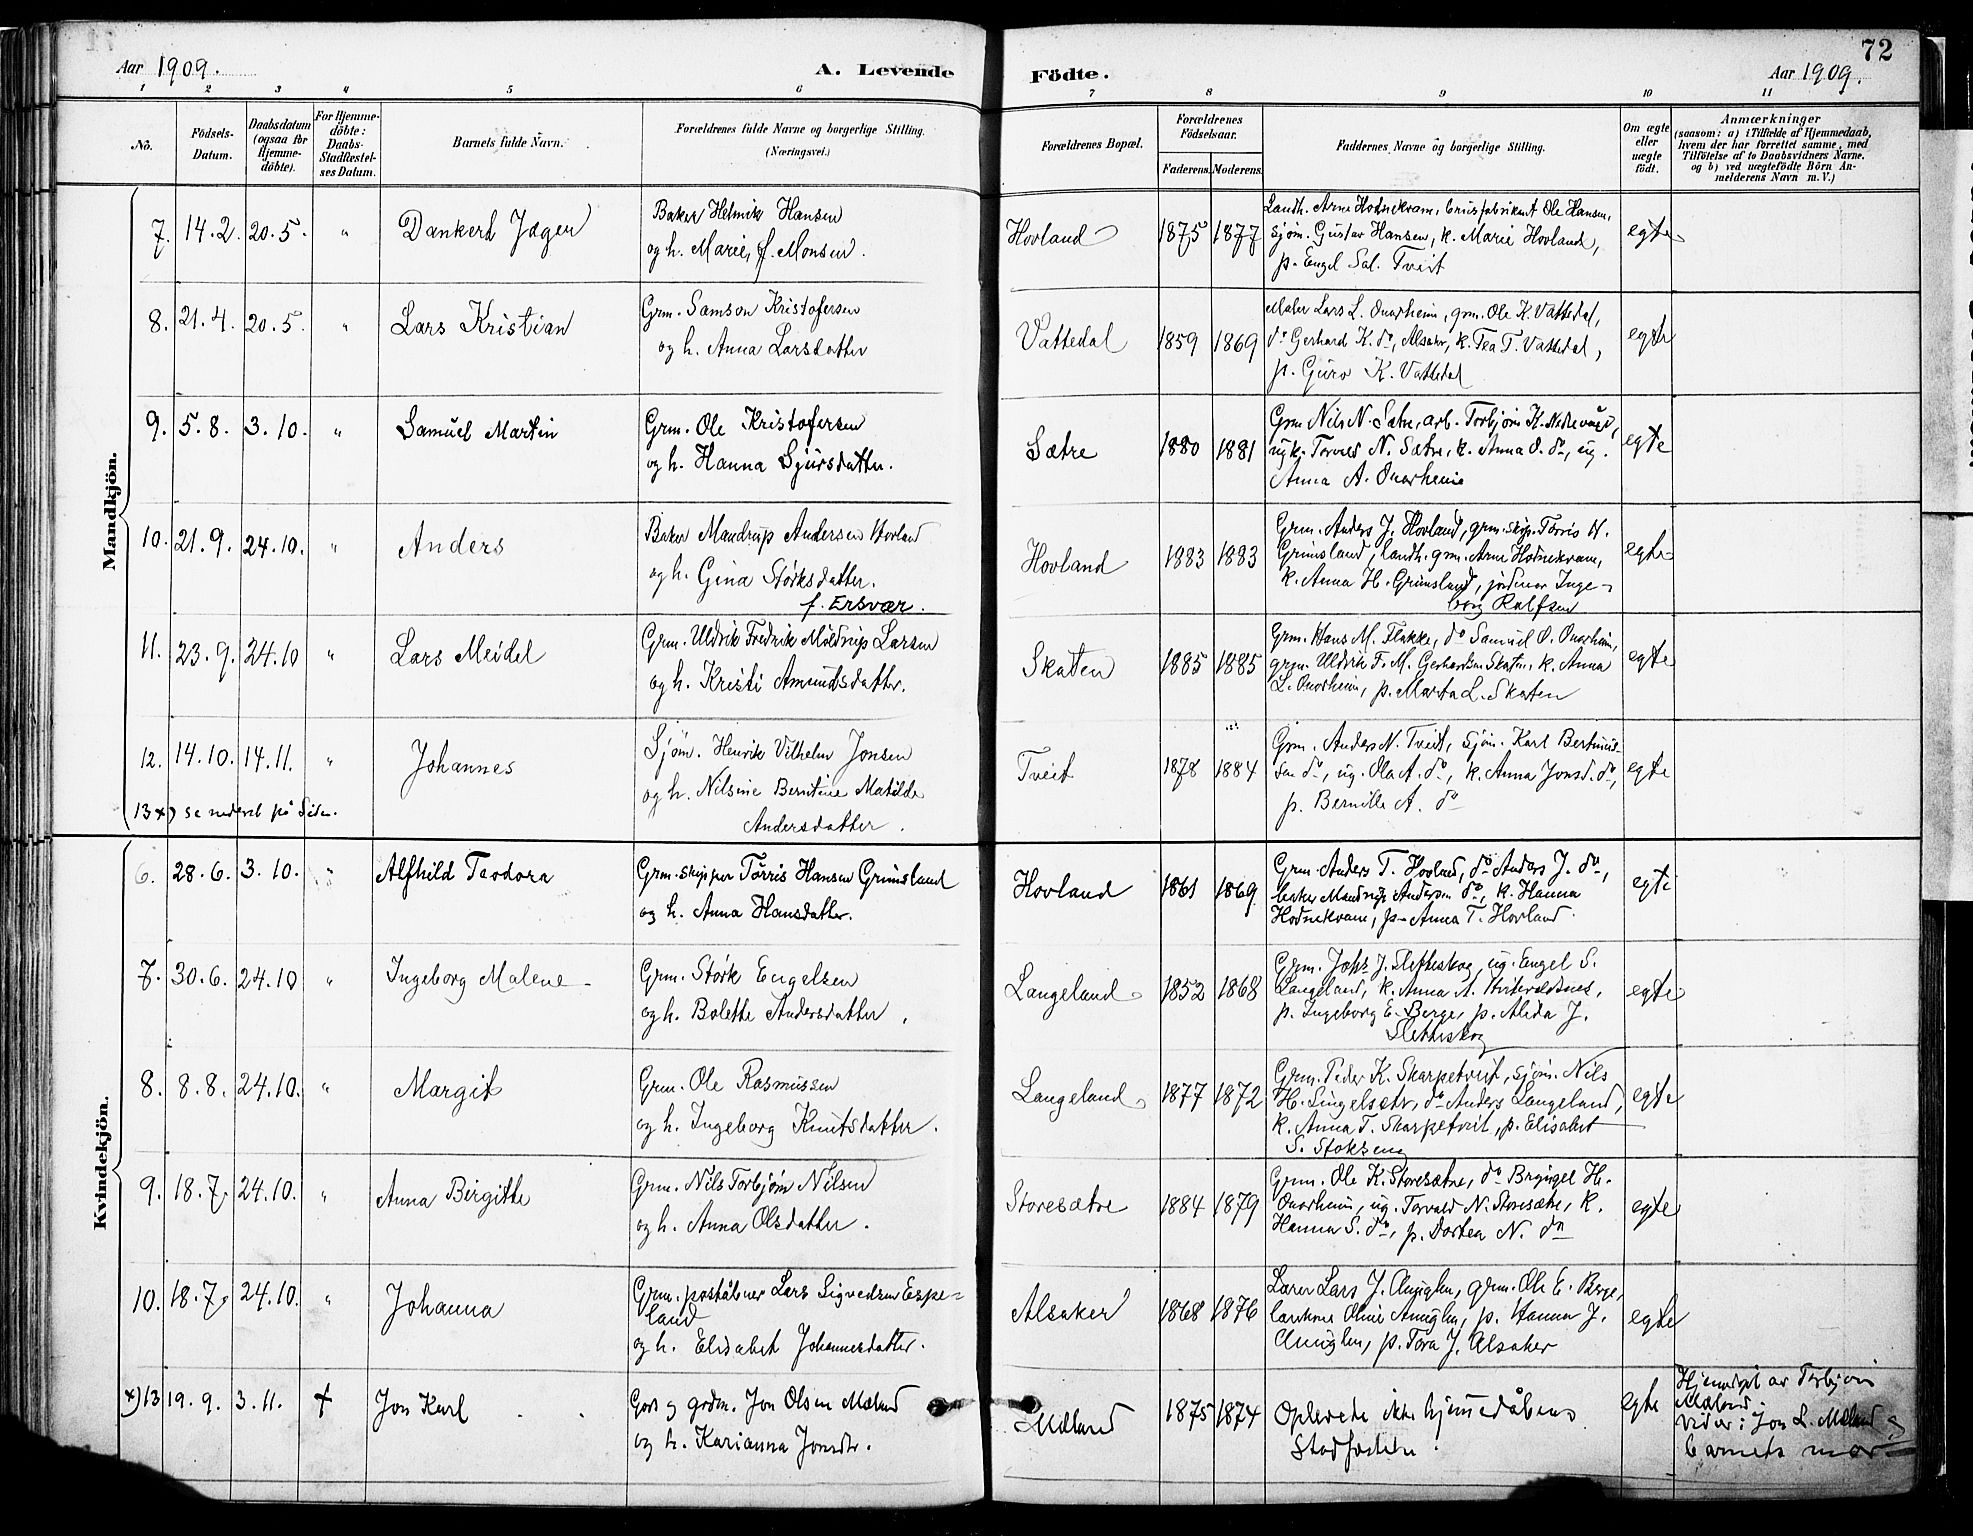 Aar 1909.
A. Levende Födte.
72
Aar 1909.
1 2 3 4 5 6 7 8 9 10 11
Nô.
Födsels-Datum.
Daabsdatum (ogsaa for Hjemme-döbte).
For Hjemme-döbte: Daabs-Stadfæstel-ses Datum.
Barnets fulde Navn.
Forældrenes fulde Navne og borgerlige Stilling.
(Næringsvei.)
Forældrenes Bopæl.
Forældrenes Födselsaar.
Faderens. Moderens.
Faddernes Navne og borgerlige Stilling.
Om ægte eller uægte født.
Anmærkninger
(saasom: a) i Tilfælde af Hjemmedaab,
hvem der har forrettet samme, med
Tilföielse af to Daabsvidners Navne.
og b) ved uægtefödte Börn An-
melderens Navn m. V.)
Mandkjön.
7. 14.2. 20.5. " Dankert Jæger
Baker Helmik Hansen
og h. Marie, f. Monsen.
Hovland 1875 1877
Landh. Arne Hodnekvam, brusfabrikant Ole Hansen,
sjøm. Gustav Hansen, k. Marie Hovland,
p. Engel Sal. Tveit
egte
8. 21.4. 20.5. " Lars Kristian
Grm. Samson Kristofersen
og h. Anna Larsdatter
Vattedal 1859 1869
Maler Lars L. Onarheim, grm. Ole K. Vattedal,
do Gerhard K. do, Alsaker, k. Tea T. Vattedal,
p. Guro K. Vattedal
egte
9. 5.8. 3.10. " Samuel Martin
Grm. Ole Kristofersen
og h. Hanna Sjursdatter.
Sætre 1880 1881
Grm Nils N. Sætre, arb. Torbjörn K. Nedrevåge,
ugk. Torvald N. Sætre, k. Anna O. do, ug.
Anna A. Onarheim
egte
10. 21.9. 24.10. " Anders
Baker Mandrup Andersen Hovland
og h. Gina Størksdatter.
f. Ersvær.
Hovland 1883 1883
Grm. Anders J. Hovland, grm. skip. Tørris H.
Grimsland, landh. grm. Arne Hodnekvam,
k. Anna H. Grimsland, jordmor Inge-
borg Ralfsen
egte
11. 23.9. 24.10 " Lars Meidel
Grm. Uldrik Fredrik Møldrup Larsen
og h. Kristi Amundsdatter.
Skaten 1885 1885
Grm. Hans M. Flakke, do Samuel O. Onarheim,
grm. Uldrik F. M. Gerhardsen Skaten, k. Anna
L. Onarheim, p. Marta L. Skaten
egte
12. 14.10. 14.11. " Johannes
Sjøm. Henrik Vilhelm Jonsen
og h. Nilsine Berntine Matilde
Andersdatter.
Tveit 1878 1884
Grm. Anders N. Tveit, sjøm. Karl Bertinus-
sen do, ug. Ola A. do, k. Anna Jonsd. do,
p. Bernille A. do
egte
(13 x) se nederst på Siden.
Kvindekjön.
6. 28.6. 3.10. " Alfhild Teodora
Grm. skipper Tørris Hansen Grimsland
og h. Anna Hansdatter.
Hovland 1861 1869
Grm. Anders T. Hovland, do Anders J. do,
baker Mandrup Andersen do, k. Hanna
Hodnekvam, p. Anna T. Hovland.
egte
7. 30.6. 24.10 " Ingeborg Malene
Grm. Størk Engelsen
og h. Bolette Andersdatter.
Langeland 1852 1868
Grm. Johs J. Sletteskog, ug. Engel S.
Langeland, k. Anna A.
p. Ingeborg E. Berge, p. Alida J.
Sletteskog
egte
8. 8.8. 24.10. " Margit
Grm. Ole Rasmussen
og h. Ingeborg Knutsdatter.
Langeland 1877 1872
Grm. Peder K. Skarpetveit, sjøm. Nils
H. Singelsætr, do Anders Langeland,
k. Anna T. Skarpetveit, p. Elisabet
S. Stoksem
egte
9. 18.7. 24.10. " Anna Birgitte
Grm. Nils Torbjörn Nilsen
og h. Anna Olsdatter.
Storesætre 1884 1879
Grm. Ole K. Storesætre, do Brynjel H.
Onarheim, ug. Torvald N. Storesætre, k.
Hanna S. do, p. Dortea N. do
egte
10. 18.7. 24.10. " Johanna
Grm. poståbner Lars Sigvedsen Espe-
land
og h. Elisabet Johannesdatter.
Alsaker 1868 1876
Lærer Lars J. Øniglen, grm. Ole E. Berge,
p. Hanna J.
p. Tora J. Alsaker
egte
x) 13 19.9. 3.11. + Jon Karl
Gas og grdm. Jon Olsen Mæland
og h. Karianna Jonsdtr.
Mæland 1875 1874
Oplevede ikke hjemedåbens
Stadfestelse.
egte
Hjemdøpt av Torbjörn
Mæland.
Vidner: Jon L. Mæland og
barnets mor